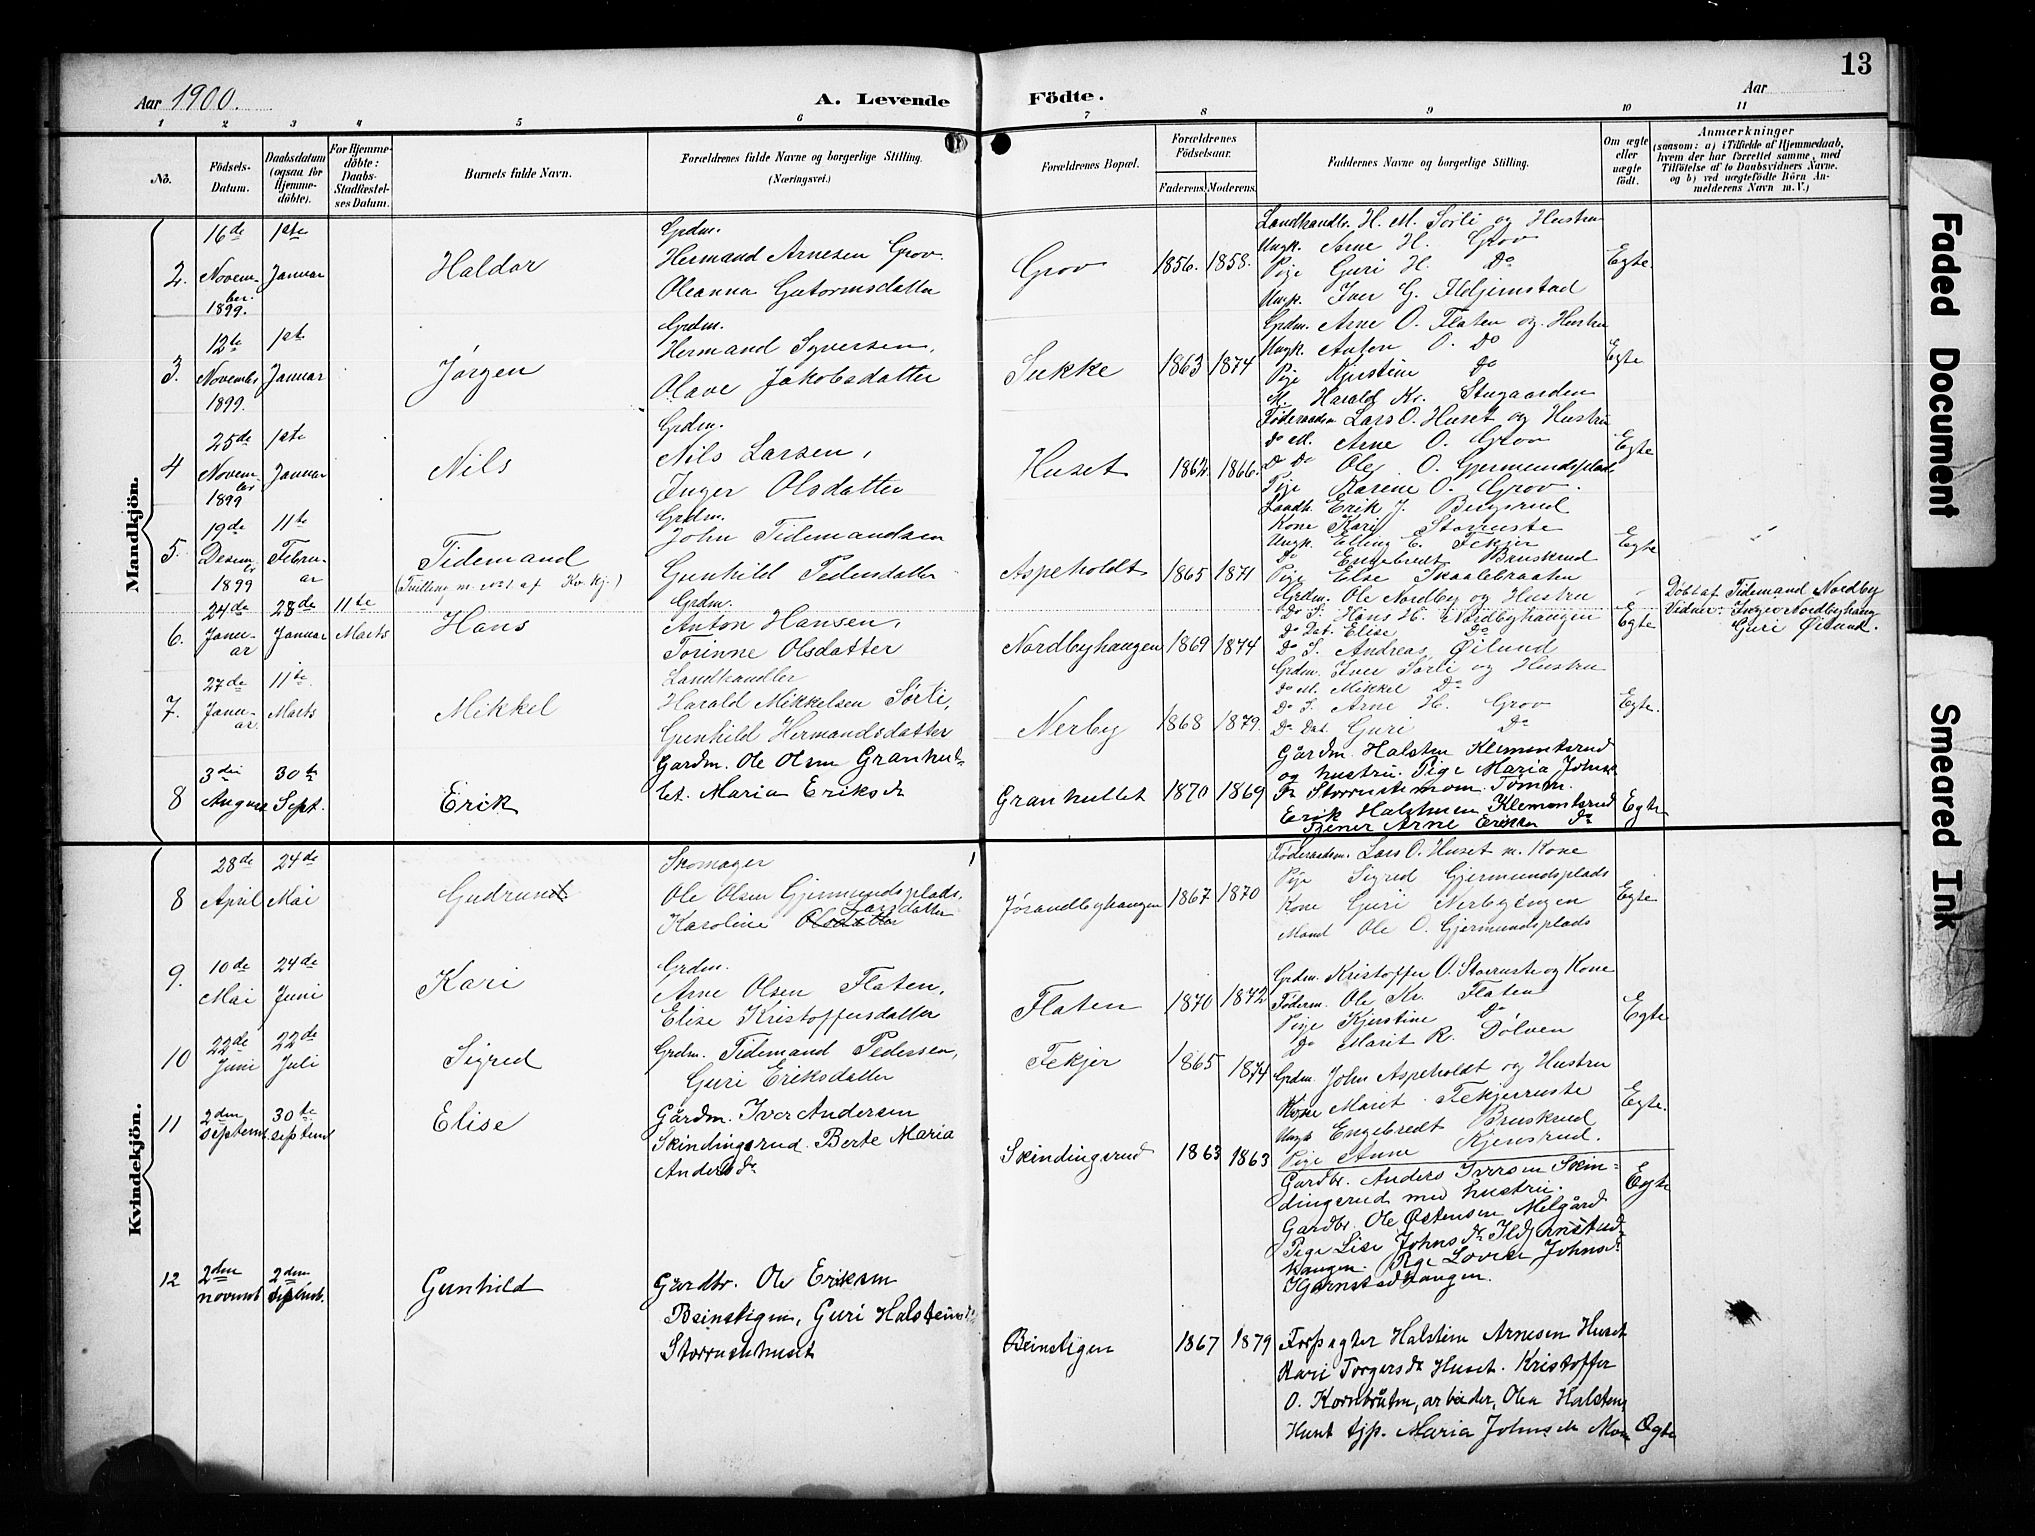 13
Aar 1900.
A. Levende Födte.
Aar
1 2 3 4 5 6 7 8 9 10 11
No.
Födsels-Datum.
Daabsdatum (ogsaa for Hjemme-döbte).
For Hjemme-döbte: Daabs-Stadfæstel-ses Datum.
Barnets fulde Navn.
Forældrenes fulde Navne og borgerlige Stilling. (Næringsvei.)
Forældrenes Bopæl.
Forældrenes Födselsaar.
Faderens. Moderens.
Faddernes Navne og borgerlige Stilling.
Om ægte eller uægte födt.
Anmærkninger
(saasom: a) i Tilfælde af Hjemmedaab, hvem der har forrettet samme, med Tilföielse af to Daabsvidners Navne. og b) ved uægtefödte Börn An-melderens Navn m. V.)
Mandkjön.
2. 16de Novem-ber. 1899. 1ste Januar
Haldor
Grdm.
Hermand Arnesen Grov.
Oleanna Gutormsdatter
Grov 1856. 1858.
Landhandlr. H. M. Sørli og Hustru
Ungk. Arne H. Grov
Pige Guri H. Do
Ungk. Iver G. Hdjernstad
Egte.
3. 12te Novembr 1899. 1ste Januar
Jørgen
Grdm.
Hermand Syversen,
Olave Jakobsdatter
Sukke 1863 1874
Grdm. Arne O. Flaten og Hustru
Ungk. Anton O. Do
Pige Kjerstine Do
M. Harald Kr. Stugaarden
Egte
4 25de Novem-ber 1899 1ste Januar
Nils
Grdm.
Nils Larsen,
Inger Olsdatter
Huset 1862. 1866.
Føderaadsm Lars O. Huset og Hustru
Do M. Arne O. Grov
D Do Ole O. Gjermundsplads
Pige Karene O. Grov.
Egte
5. 19de Desem-br 1899 11te Febru-ar
Tidemand
(Tvilling m. No 1 af Kv. kj.)
Grdm.
John Tidemandsen
Gunhild Pedersdatter
Aspeholdt 1865 1871
Landh. Erik J. Bergsrud
Kone Kari Storruste
Ungk. Elling E. Fekjer
Do Engebredt Bruskrud
Pige Else Skaalebraaten
Egte
6. 24de Janu-ar 28de Januar 11te Marts
Hans
Grdm.
Anton Hansen,
Torinne Olsdatter
Nordbyhaugen 1869 1874
Grdm. Ole Nordby og Hustru
Do S. Hans H. Nordbyhaugen
Do Dat. Elise Do
Do S. Andreas Øilund
Egte
Døbt af Tidemand Nordby
Vidner: Inger Nordbyhaug
Guri Øilund.
7. 27de Janu-ar. 11te. Marts
Mikkel
Landhandler
Harald Mikkelsen Sørli,
Gunhild Hermandsdatter
Nerby 1868 1879.
Grdm. Iver Sørli og Hustru
Do M. Mikkel Do
Do S. Arne H. Grov
Do Dat. Guri Do
Egte.
8 3die August 30te Sept.
Erik
Gardm. Ole Olsen Granhul-
let. Maria Eriksdr
Granhullet 1870 1869
Gårdm. Halsten Klementsrud
og hustru. Pige Maria Johns
Storrustemoen. Tømm.
Erik Halstensen Klementsrud
Tjener Arne Eriksen Do
Egte
Kvindekjön.
8 28de April 24de Mai
Gudrund
Skomager
Ole Olsen Gjermundsplads,
Larsdatter
Karoline Olsdatter
Jørandbyhaugen 1867 1870
Føderaadsm. Lars O. Huset m. Kone
Pige Sigred Gjermundsplads
Kone Guri Nerbyengen
Mand Ole O. Gjermundsplads
Egte
9. 10de Mai 24de Juni
Kari
Grdm.
Arne Olsen Flaten,
Elise Kristoffersdatter
Flaten 1870 1872
Grdm. Kristoffer O. Storruste og Kone
Føderm. Ole Kr. Flaten
Pige Kjerstine Do
Do Marit R. Dølven
Egte
10 22de Juni 22de Juli
Sigred
Grdm. Tidemand Pedersen,
Guri Eriksdatter
Fekjer 1865 1874
Grdm. John Aspeholdt og Hustru
Kone Marit Fekjerruste
Ungk Engebredt Bruskrud
Pige Anne Kjensrud.
Egte.
11 2den Septemb. 30te Septemb
Elise
Gårdm. Iver Andersen
Skindingsrud. Berte Maria
Andersdr
Skindingsrud 1863 1863
Gardbr. Anders Iversen Skin-
dingsrud med hustru.
Gardbr. Ole Østensen Melgård
Pige Lise Johnsdr Ildjernstad-
haugen. Pige Lovise Johnsdr
Ildjernstadhaugen.
Egte
12 2den novemb 2den
Gunhild
Gårdbr. Ole Eriksen
Beinstigen, Guri Halsteinsdr
Storrustehuset
Beinstigen 1867 1879
Forpagter Halsten Arnesen Huset
Kari Torgersdr Huset. Kristoffer
O. Kornbråten, arbeider, Olea Halstens
Huset tjp. Maria Johnsdr Moen
Ægte
Faded Document
Smeared Ink